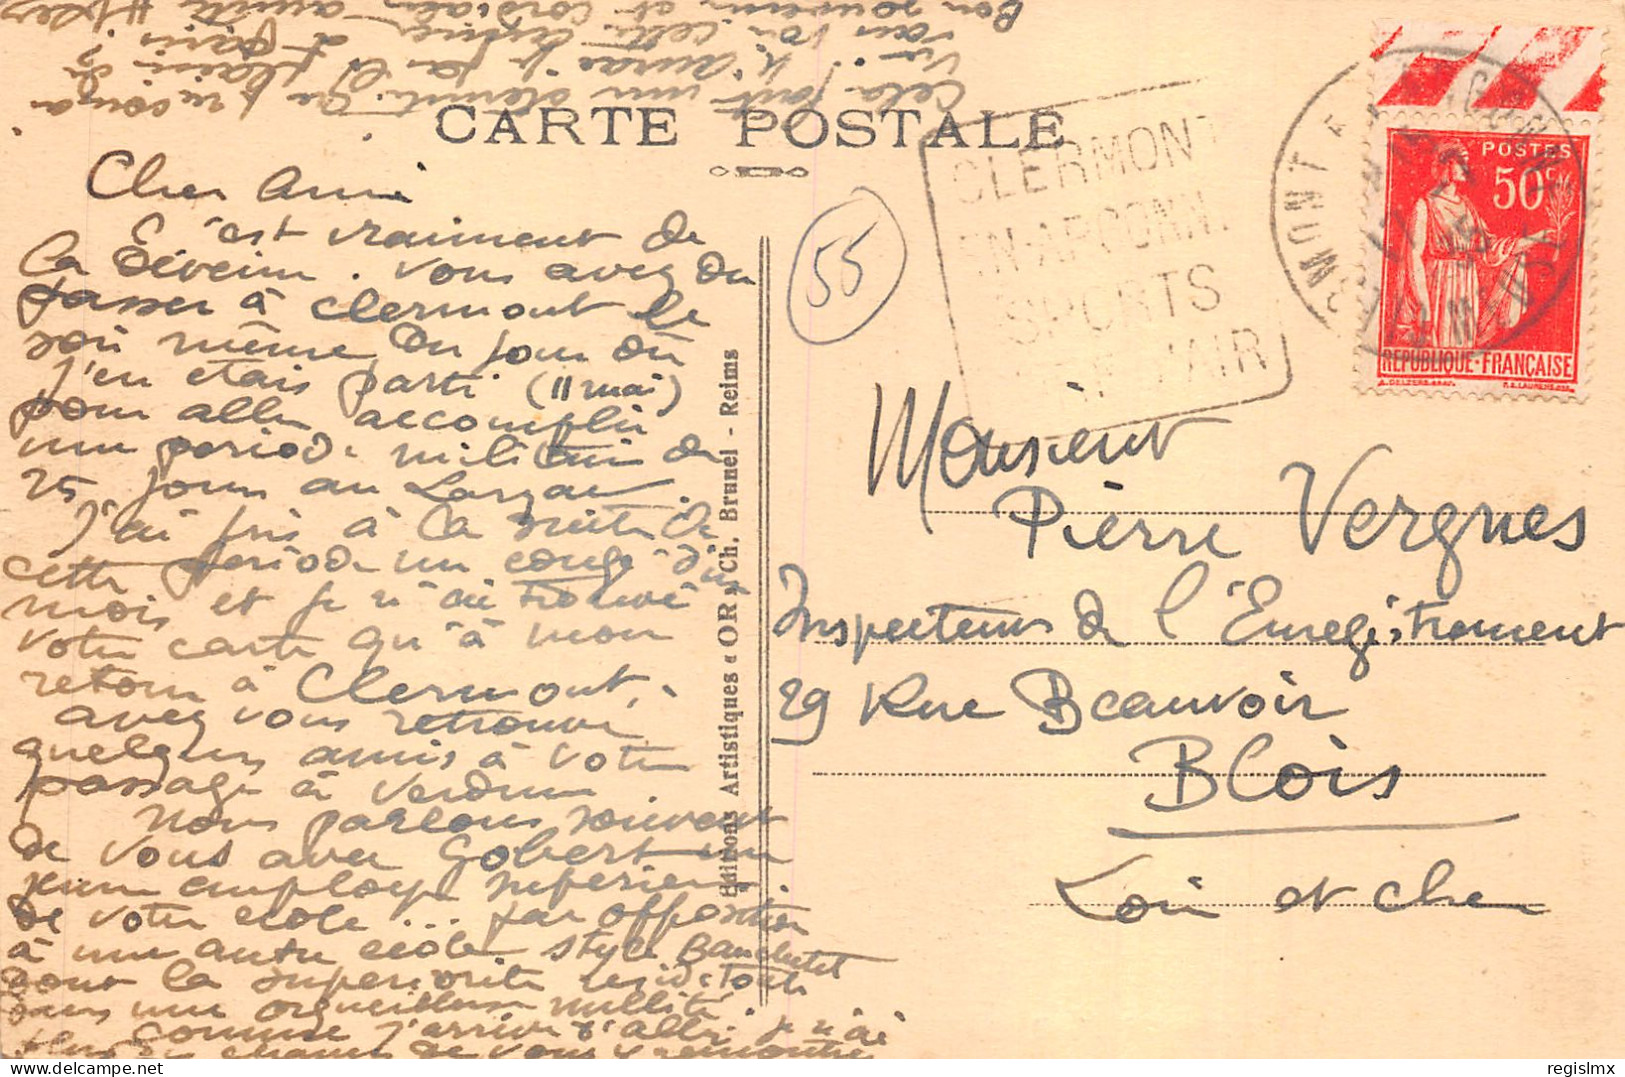 CARTE POSTALE
Cher Ami
C'est vraiment de
la déveine. Vous avez du
passer à Clermont le
soir même du jour où
j'en étais parti (11 mai)
pour aller accomplir
une période militaire de
25 jours au Larzac.
J'ai pris à la suite de
cette période un congé d'un
mois et je n'ai trouvé
votre carte qu'à mon
retour à Clermont.
avez vous retrouvé
quelques amis à votre
passage à Verdun
Nous parlons souvent
de vous avec Gobert un
jeune employé supérieur
de votre école... par opposition
à une autre école style Bauchetet
dont la superiorité réside toute
dans une orgueilleuse nullité
Comme j'arrive d'aller je n'ai
plus de chance de vous rencontrer
Cela fait un
Bon souvenir et cordiale amitié
55
CLERMONT
EN-ARGONN.
SPORTS
AIR
POSTES
50c
REPUBLIQUE-FRANÇAISE
Monsieur
Pierre Vergnes
Inspecteur de l'Enregistrement
29 Rue Beauvoir
Blois
Loir et Cher
Editions Artistiques « OR » Ch. Brunel - Reims
regislmx